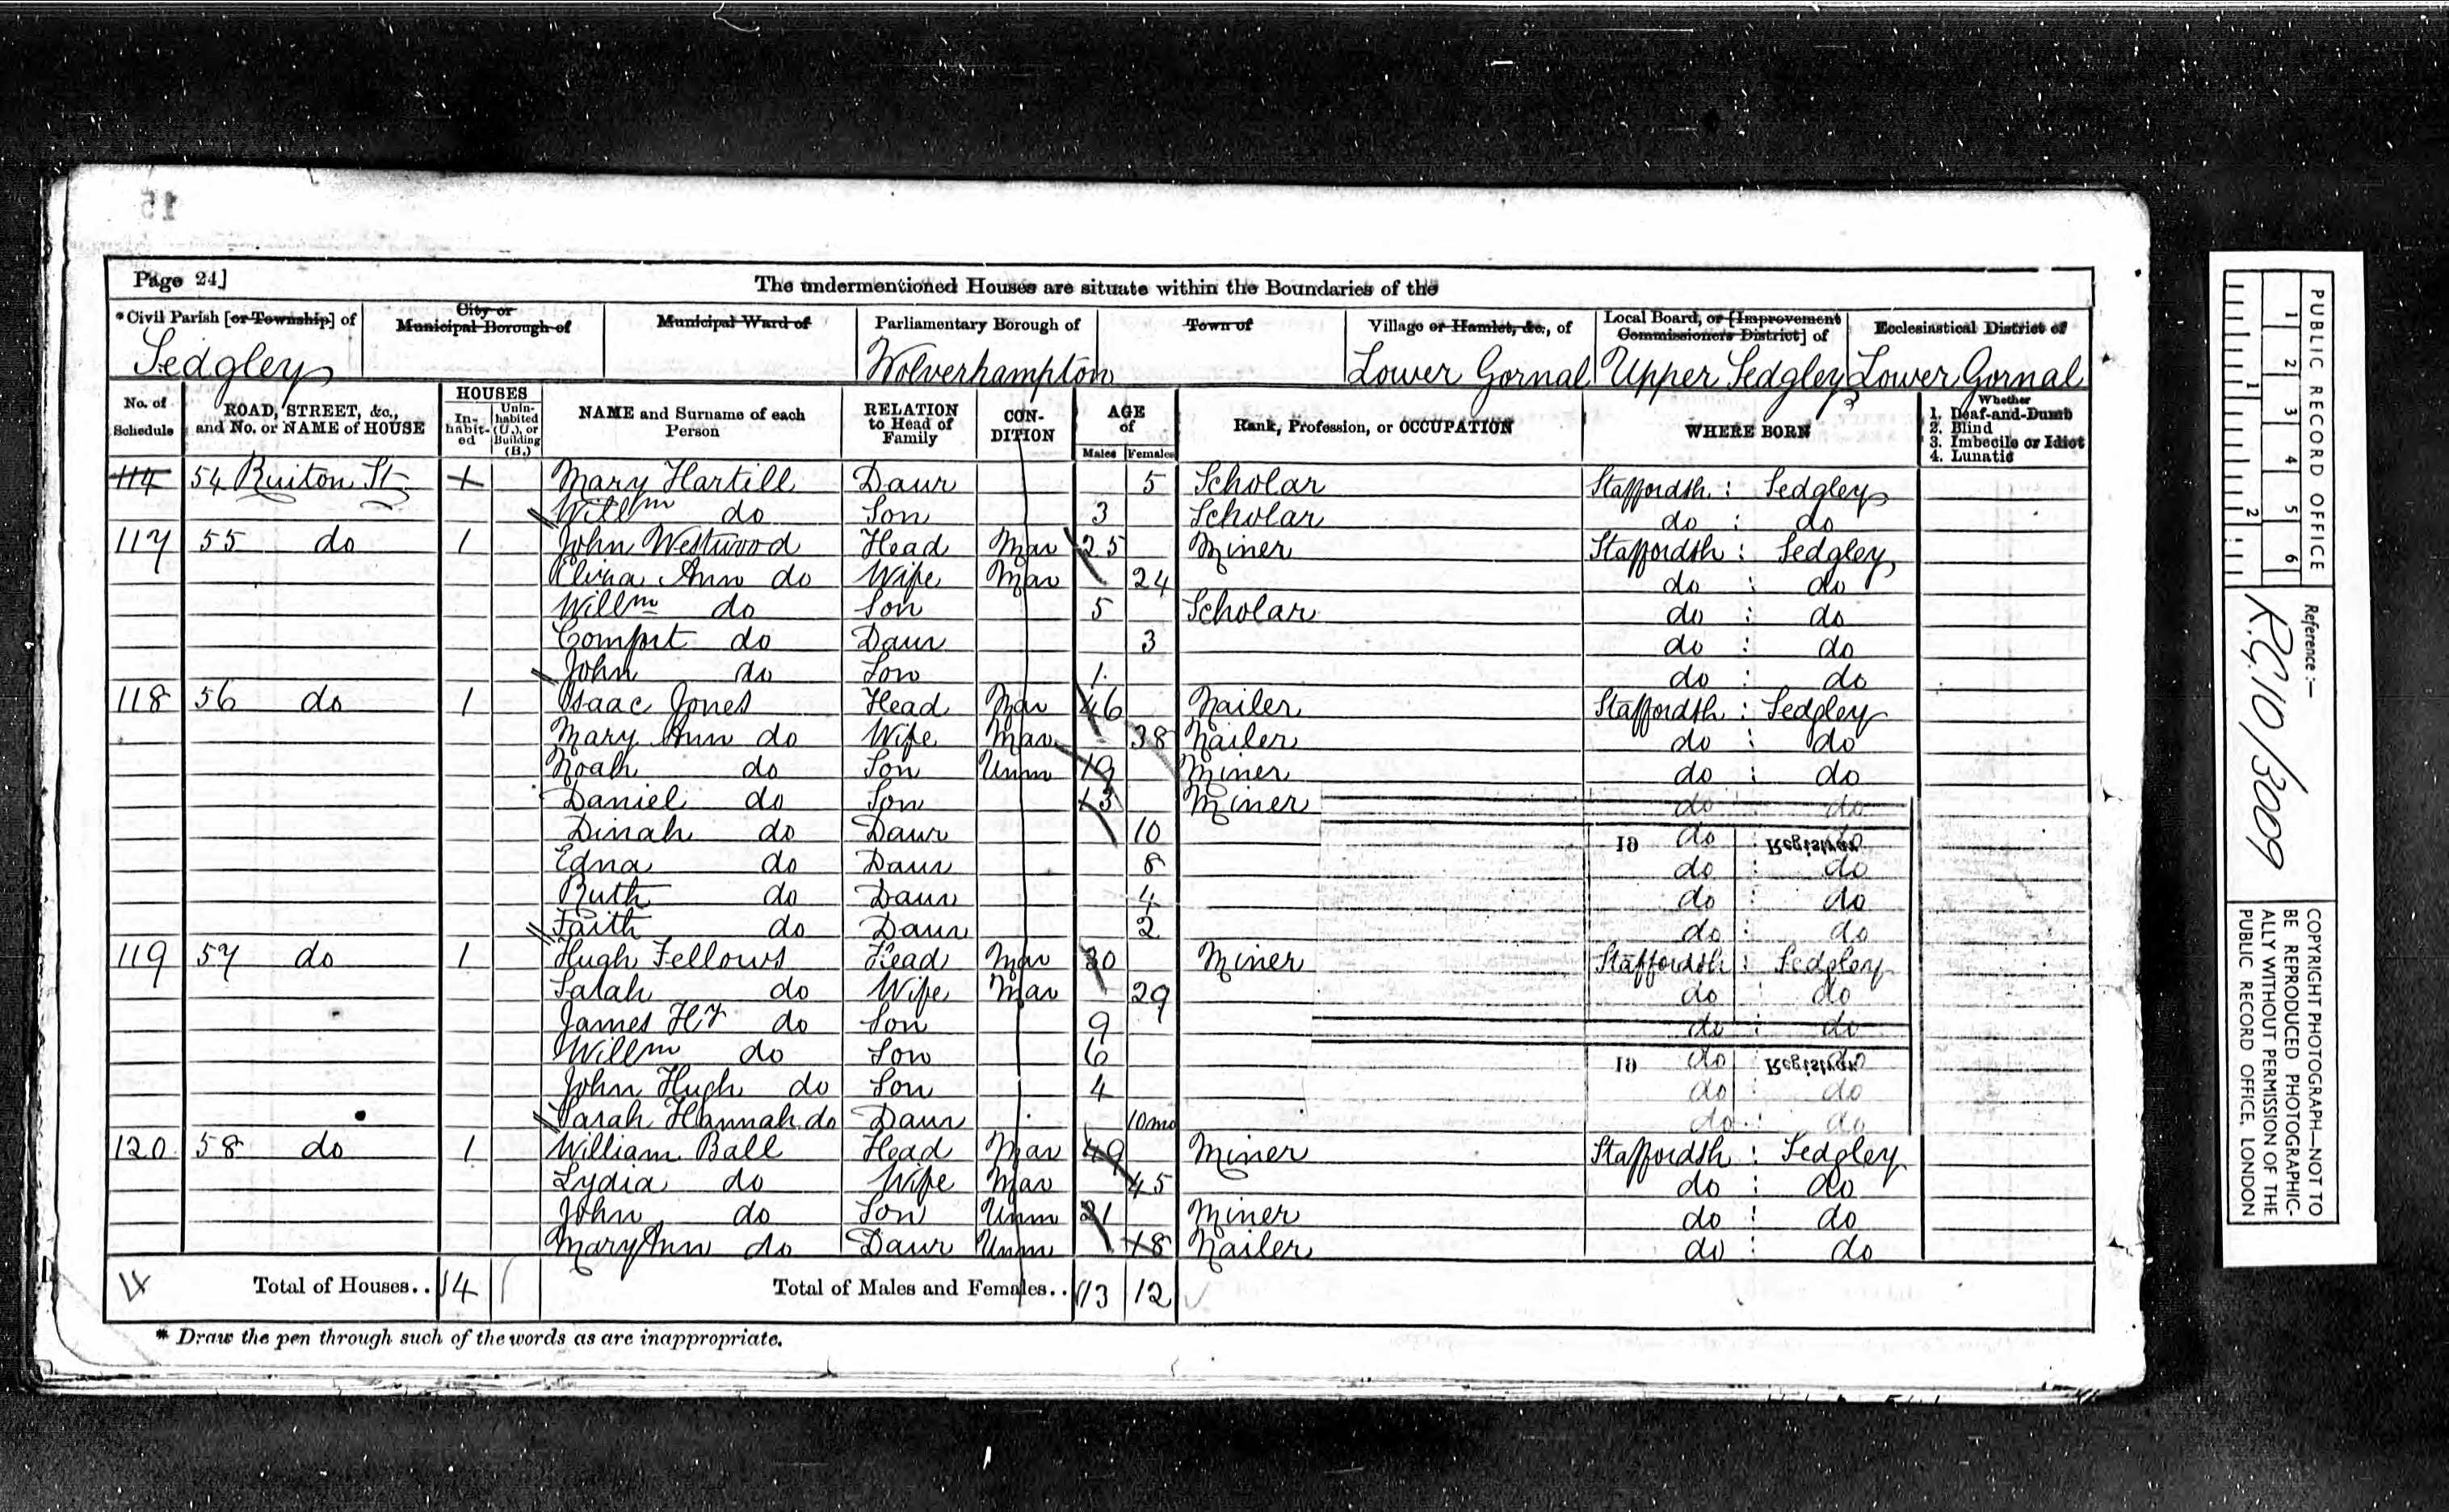 15
Page 24]
The undermentioned Houses are situate within the Boundaries of the
*Civil Parish [or Township] of
City or Municipal Borough of
Municipal Ward of
Parliamentary Borough of
Town of
Village or Hamlet, &c., of
Local Board, or [Improvement Commissioners District] of
Ecclesiastical District of
Sedgley Wolverhampton Lower Gornal Upper Sedgley Lower Gornal
No. of Schedule
ROAD, STREET, &c., and No. or NAME of HOUSE
HOUSES
Inhabit-ed
Unin-habited (U.), or Building (B.)
NAME and Surname of each Person
RELATION to Head of Family
CON-DITION
AGE of
Males Females
Rank, Profession, or OCCUPATION
WHERE BORN
Whether
1. Deaf-and-Dumb
2. Blind
3. Imbecile or Idiot
4. Lunatic
114 54 Ruiton St Mary Hartill Daur 5 Scholar Staffordsh : Sedgley
Willm do Son 3 Scholar do : do
117 55 do 1 John Westwood Head Mar 25 Miner Staffordsh : Sedgley
Ann do Wife Mar 24 do : do
Willm do Son 5 Scholar do : do
Comfort do Daur 3 do : do
John do Son 1 do : do
118 56 do 1 Isaac Jones Head Mar 46 Nailer Staffordsh : Sedgley
Mary Ann do Wife Mar 38 Nailer do : do
Noah do Son Unm 19 Miner do : do
Daniel do Son 13 Miner do : do
Dinah do Daur 10 do : do
19 Registrar
Edna do Daur 8 do : do
Ruth do Daur 4 do : do
Faith do Daur 2 do : do
119 57 do 1 Hugh Fellows Head Mar 30 Miner Staffordsh : Sedgley
Sarah do Wife Mar 29 do : do
James Hy do Son 9 do : do
Willm do Son 6 do : do
19 Registrar
John Hugh do Son 4 do : do
Sarah Hannah do Daur 10mo do : do
120 58 do 1 William Ball Head Mar 49 Miner Staffordsh : Sedgley
Lydia do Wife Mar 45 do : do
John do Son Unm 21 Miner do : do
Mary Ann do Daur Unm 18 Nailer do : do
4 Total of Houses.. 4 Total of Males and Females.. 13 12
* Draw the pen through such of the words as are inappropriate.
PUBLIC RECORD OFFICE
1 2 3 4 5 6
1 2
Reference :-
R.G. 10/3009
COPYRIGHT PHOTOGRAPH—NOT TO
BE REPRODUCED PHOTOGRAPHIC-
ALLY WITHOUT PERMISSION OF THE
PUBLIC RECORD OFFICE, LONDON